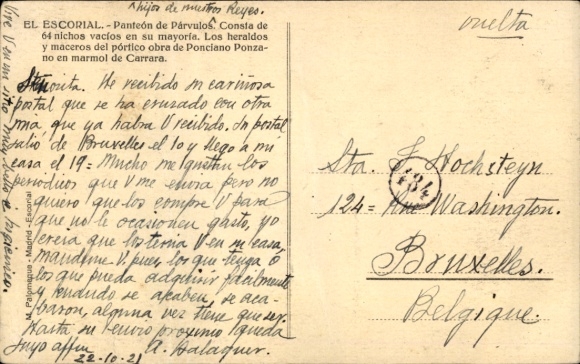 hijos de nuestros Reyes.
EL ESCORIAL. - Panteón de Párvulos. Consta de
64 nichos vacíos en su mayoría. Los heraldos
y maceros del pórtico obra de Ponciano Ponza-
no en marmol de Carrara.
Señorita. He recibido su cariñosa
postal que se ha crusado con otra
mia, que ya habra V recibido. Su postal
salió de Bruxelles el 10 y llego a mi
casa el 19 = Mucho me gustan los
periodicos que V me envia pero no
quiero que los compre V para
que no le ocasionen gasto, yo
creia que los tenia V en su casa,
mandeme V. pues los que tenga o
los que pueda adquirir facilmente
y cuando se acaben, se aca-
baron, alguna vez tiene que ser.
Hasta su envio proximo queda
suyo affmo
A. Balaguer.
22-10-21
Vive V en un sitio muy bello e higienico.
M. Palomeque - Madrid - Escorial
vuelta
Sta. J Hochsteyn
184
124 = Rue Washington.
Bruxelles.
Belgique.